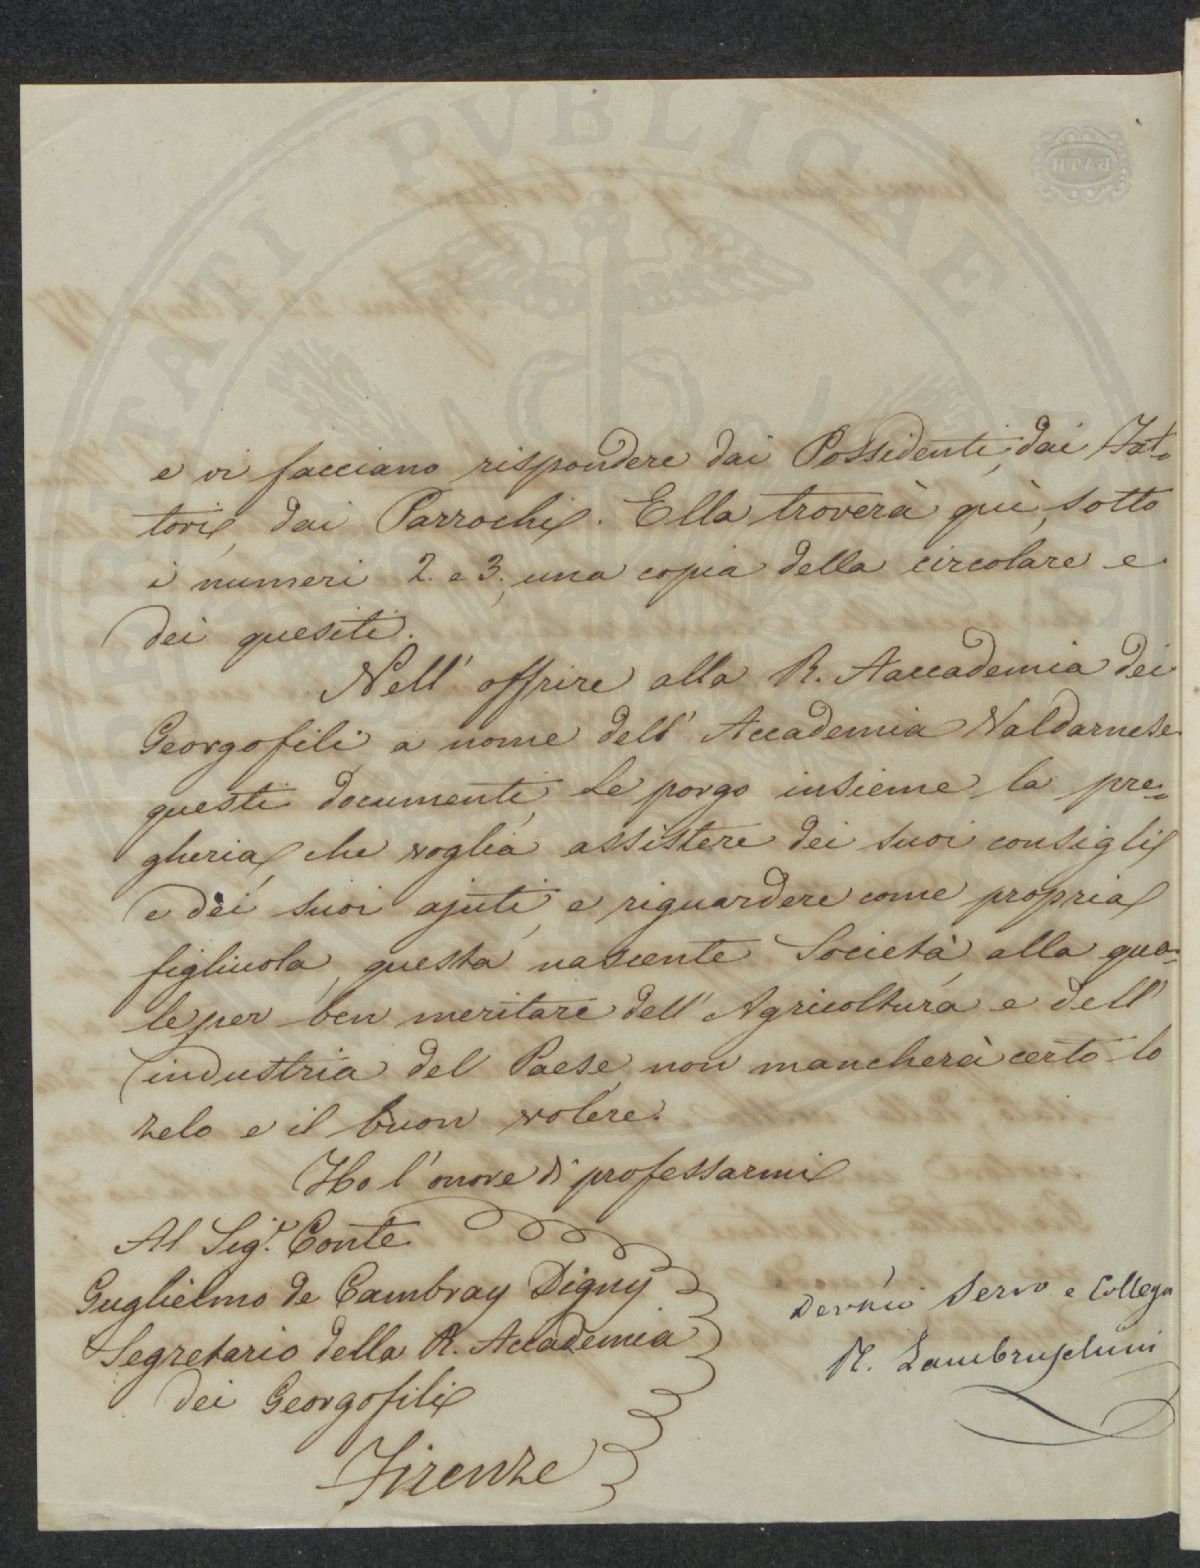 e vi facciano rispondere dai Possidenti, dai Fat=
tori, dai Parrochi. Ella troverà quì, sotto
i numeri 2. e 3, una copia della circolare e
dei quesiti.
Nell' offrire alla R. Aaccademia dei
Georgofili a nome dell' Accademia Valdarnese
questi documenti, Le porgo insieme la pre=
ghiera, che voglia assistere dei suoi consigli
e dei suoi ajuti, e riguardere come propria
figliuola, questa nascente Società, alla qua=
le, per ben meritare dell' Agricoltura e dell'
industria del Paese, non mancherà certo lo
zelo e il buon volere.
Ho l'onore di professarmi
Al Sig.r Conte
Guglielmo de Cambray Digny
Segretario della R. Accademia
dei Georgofili
Firenze
Servo e Collega
R. Lambruschini
PVBLICAE